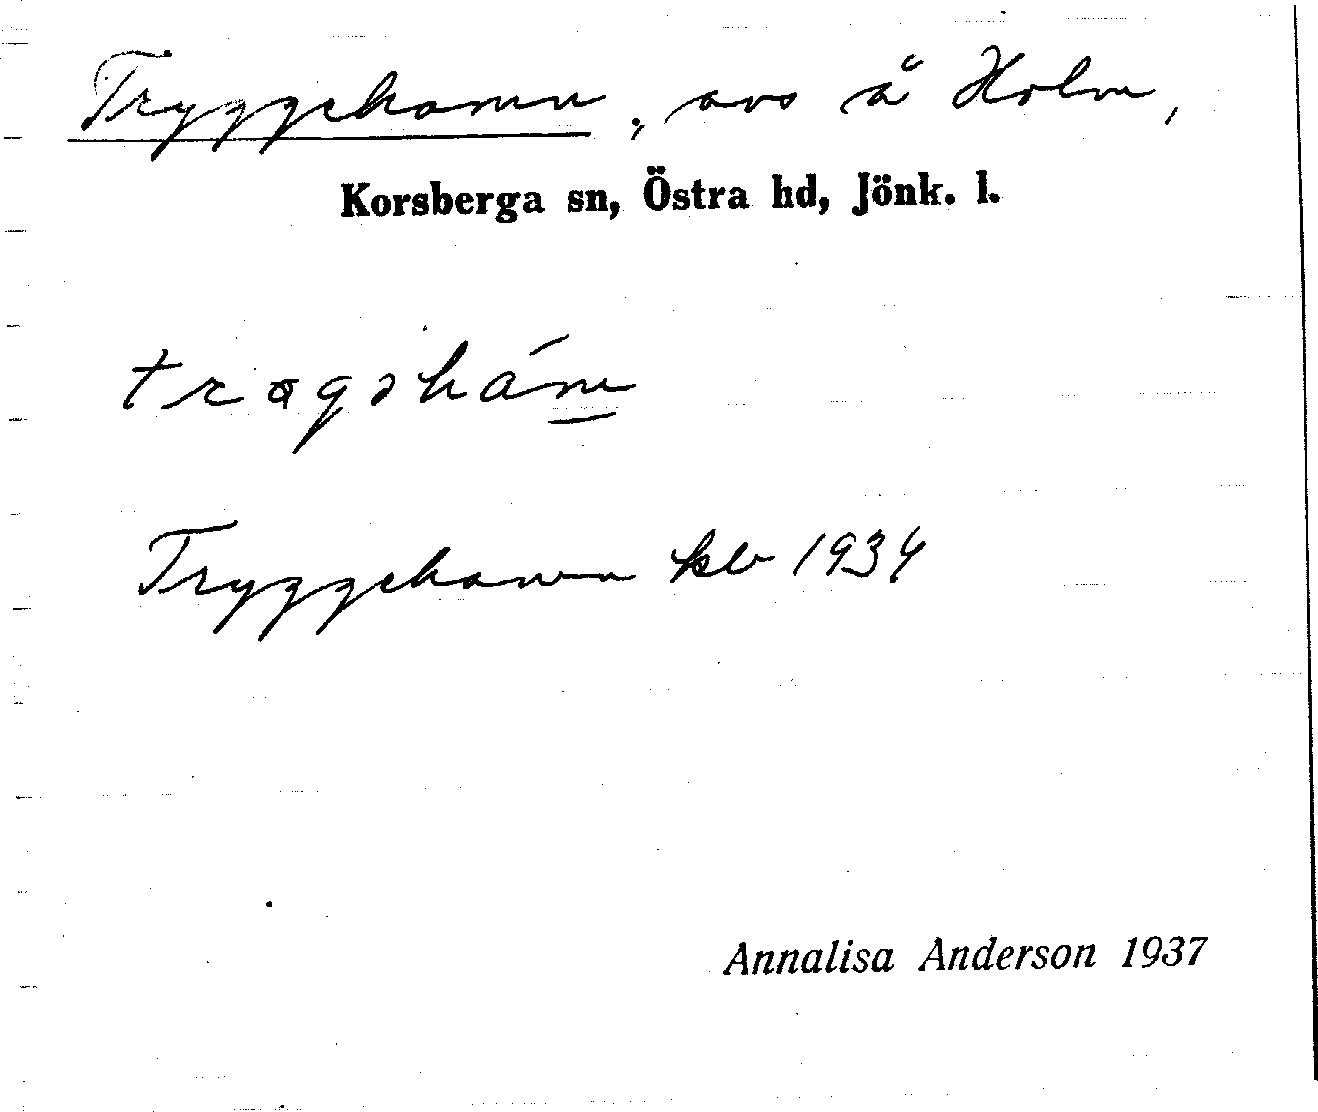 Tryggehamn, avs å Holm,
Korsberga sn, Östra hd, Jönk. l.
trøgəhám
Tryggehamn kb 1934
Annalisa Anderson 1937